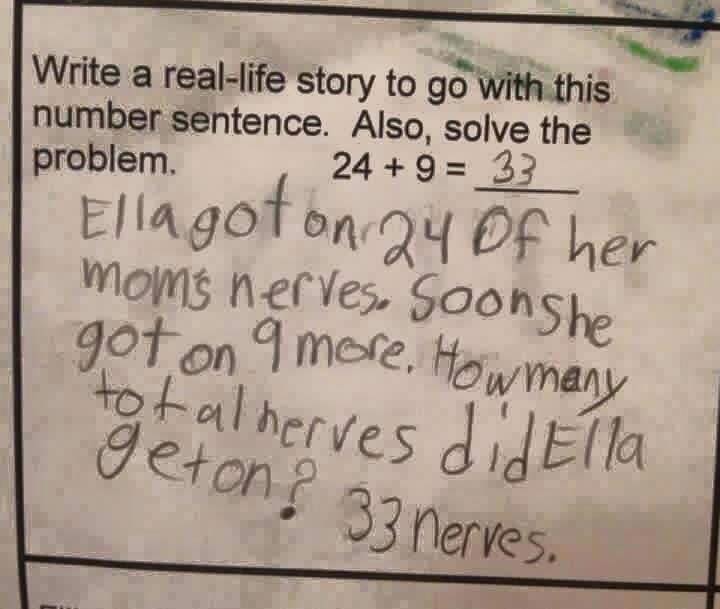 Write a real-life story to go with this
number sentence. Also, solve the
problem. 24 + 9 = 33
Ella got on 24 Of her
mom's nerves. Soon she
got on 9 more. How many
total nerves did Ella
get on? 33 nerves.